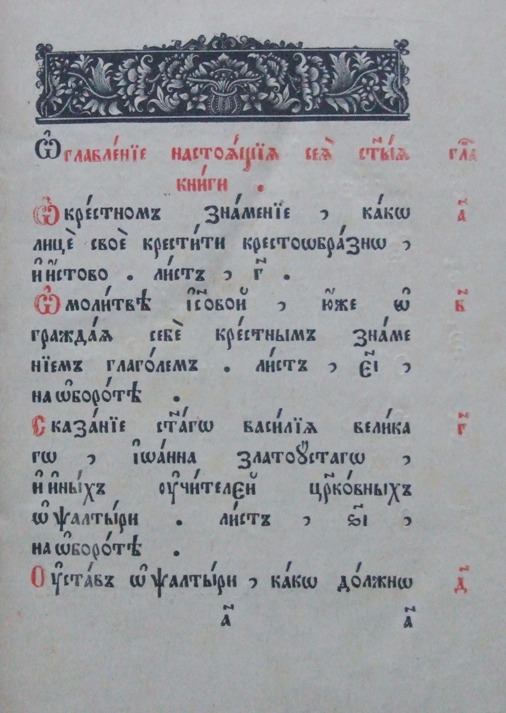 Ѡ҆главле́нїе настоѧ́щїѧ сеѧ̀ ст҃ы́ѧ гла҃
кни́ги .
Ѡ҆ кре́стномъ зна́менїе , ка́кѡ а҃
лицѐ своѐ крести́ти крестоѡбра́знѡ ,
и҆ и҆́стово . ли́стъ , г҃ .
Ѡ҆ моли́твѣ і҆сⷭ҇овой , ю҆́же ѡ҆ в҃
гражда́ѧ себѐ кре́стнымъ зна́ме
нїемъ глаго́лемъ . ли́стъ , є҃і ,
на ѡ҆боро́тѣ .
Сказа́нїе ст҃а́гѡ васи́лїѧ вели́ка г҃
гѡ , і҆ѡа́нна златоꙋ́стагѡ ,
и҆ и҆ны́хъ оу҆чи́телей цр҃ко́вныхъ
ѡ҆ ѱалты́ри . ли́стъ , ѕ҃і ,
на ѡ҆боро́тѣ .
Оу҆ста́въ ѡ҆ ѱалты́ри , ка́кѡ до́лжнѡ д҃
а҃ а҃